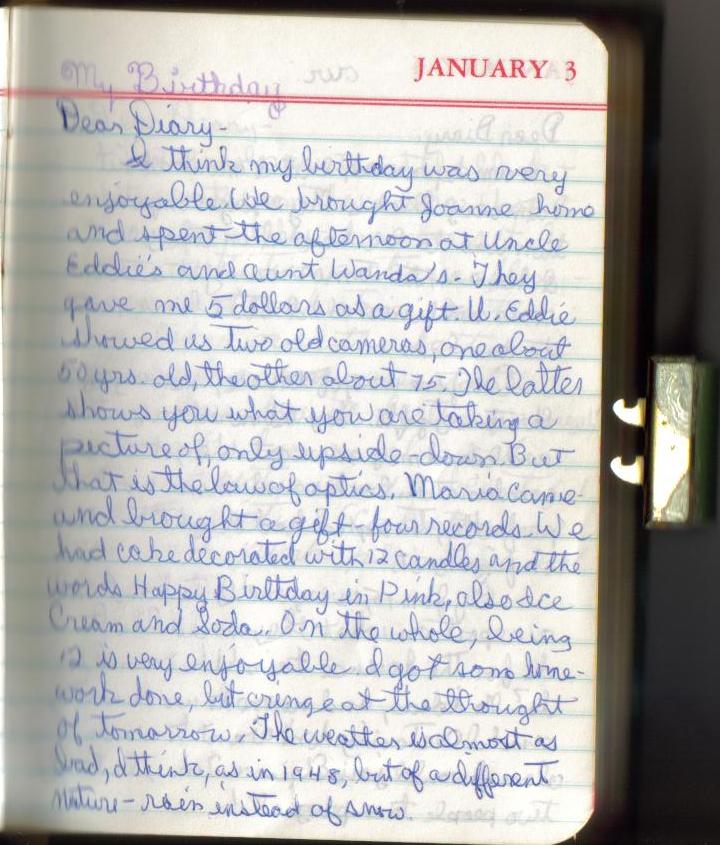 JANUARY 3
My Birthday
Dear Diary-
I think my birthday was very
enjoyable. We brought Joanne home
and spent the afternoon at Uncle
Eddie's and Aunt Wanda's. They
gave me 5 dollars as a gift. U. Eddie
showed us two old cameras, one about
50 yrs. old, the other about 75. The latter
shows you what you are taking a
picture of, only upside-down. But
that is the law of optics. Maria came
and brought a gift - four records. We
had cake decorated with 12 candles and the
words Happy Birthday in Pink, also Ice
Cream and Soda. On the whole, being
12 is very enjoyable. I got som home-
work done, but cringe at the thought
of tomarrow. The weather is almost as
bad, I think, as in 1948, but of a different
nature - rain instead of snow.